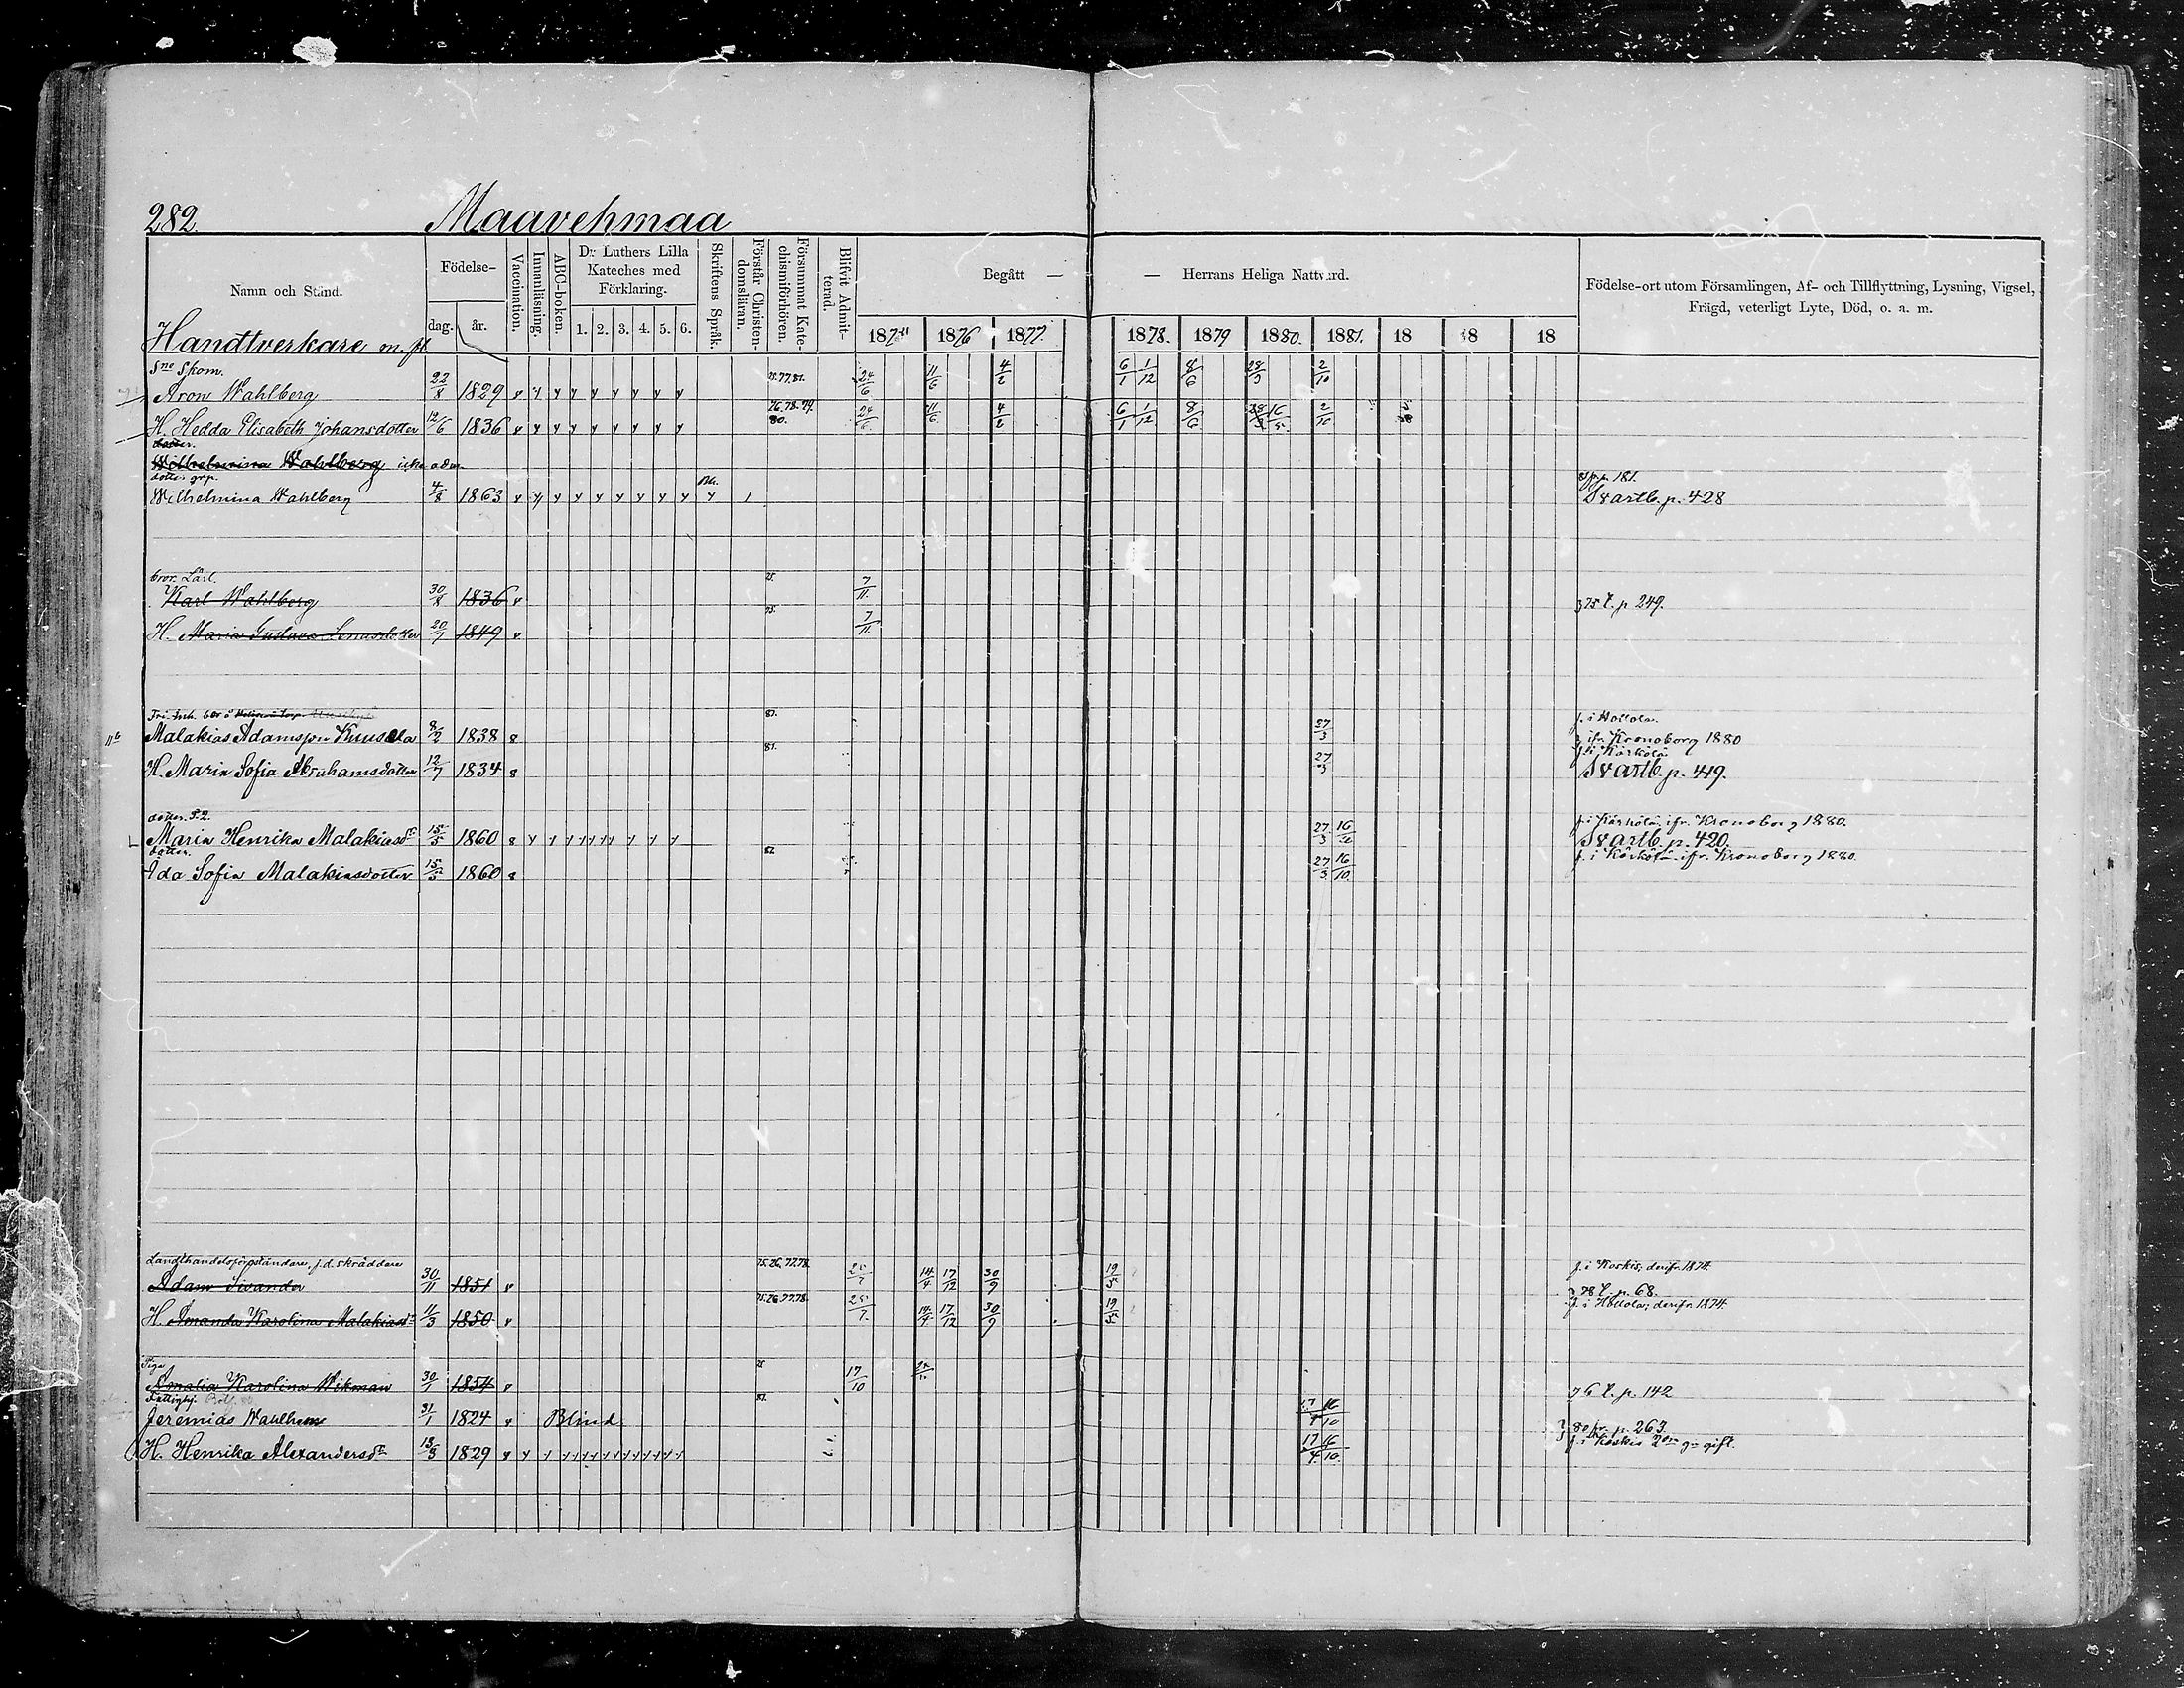 282. Maavehmaa
Namn och Stånd.
Födelse-
dag. år.
Vaccination.
Innanläsning.
ABC-boken.
Dr Luthers Lilla
Kateches med
Förklaring.
1. 2. 3. 4. 5. 6.
Skriftens Språk.
Förstår Christen-
domsläran.
Försummat Kate-
chismiförhören.
Blifvit Admit-
terad.
Begått — — Herrans Heliga Nattvard.
1875 1876 1877. 1878. 1879 1880. 1881. 18 18 18
Födelse-ort utom Församlingen, Af- och Tillflyttning, Lysning, Vigsel,
Frägd, veterligt Lyte, Död, o. a. m.
Handtverkare m. fl.
Sne Skom.
Aron Wahlberg 22/8 1829 75.77.81. 24/6 11/6 4/2 6/1 1/12 8/6 28/3 2/10
76.78.79.
H. Hedda Elisabeth Johansdotter 12/6 1836 80. 24/6 11/6 4/2 6/1 1/12 8/6 28/3 16/5 2/10
dotter.
Wilhelmina Wahlberg icke adm.
dotter
Wilhelmina Wahlberg 4/8 1863 Svartb. p. 428
bror. Lärl.
Karl Wahlberg 30/8 1836 75. 7/11. 75 t. p 249.
H. Maria Gustava Linusdotter 20/7 1849 75. 7/11.
Malakias Adamsson Kuusela 8/2 1838 81. 27/3 f. i Hollola.
ifr. Kronoborg 1880
H. Maria Sofia Abrahamsdotter 12/7 1834 81. 27/3 f. i Kärkölä
Svartb. p. 419.
dotter. F.2.
Maria Henrika Malakiasdr 15/5 1860 27/3 16/10 f. i Kärkölä ifr. Kronoborg 1880.
Svartb. p. 420.
dotter.
Ida Sofia Malakiasdotter 15/5 1860 27/3 16/10 f. i Kärkölä ifr. Kronoborg 1880.
Landthandelsföreståndare, f.d. skräddare
Adam Sivander 30/11 1851 75.76.77.78. 25/7 14/4 17/12 30/9 19/5 f. i Koskis; derifr. 1874
78 t. p. 68.
H. Amanda Karolina Malakiasdr 11/3 1850 75.76.77.78. 25/7 14/4 17/12 30/9 19/5 f. i Hollola; derifr. 1874
Piga
Amalia Karolina Wikman 30/1 1854 75 17/10 76 t. p. 142
Fattighj.
Jeremias Wahlhem 31/1 1824 Blind 81. 17/4 16/10 80 fr. p. 263
H. Henrika Alexandersdr 13/3 1829 17/4 16/10 f. i Koskis 2dra g. gift.